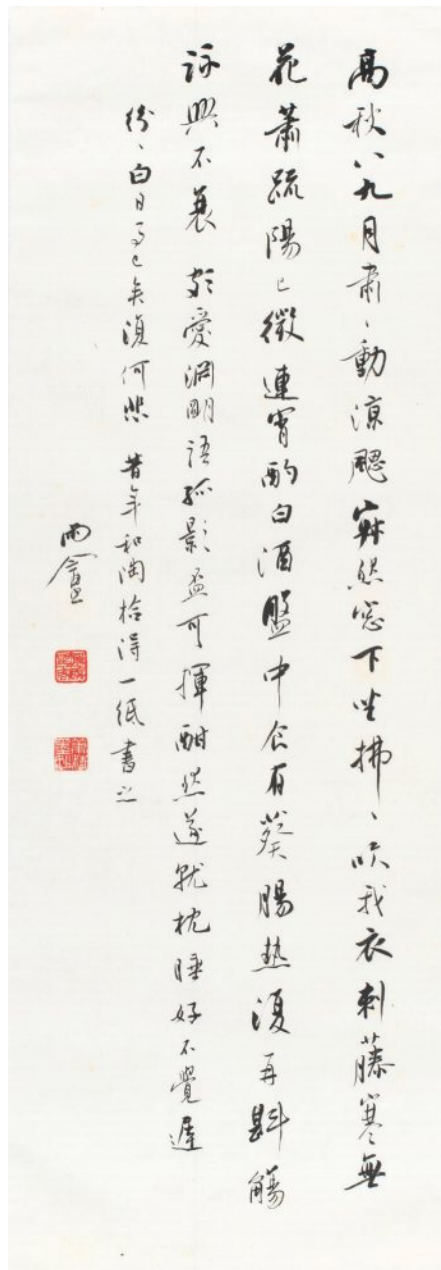 高秋八九月肅、動涼颸寂然窓下坐拂、吹我衣刺藤寒無
花蕭疏陽已微連宵酌白酒盤中食有葵腸熱復再斟觴
詠興不衰頗愛淵明語孤影盃可揮酣然遂就枕睡好不覺遲
紛、白日事已矣復何悲 昔年和陶拾得一紙書之
雨盦